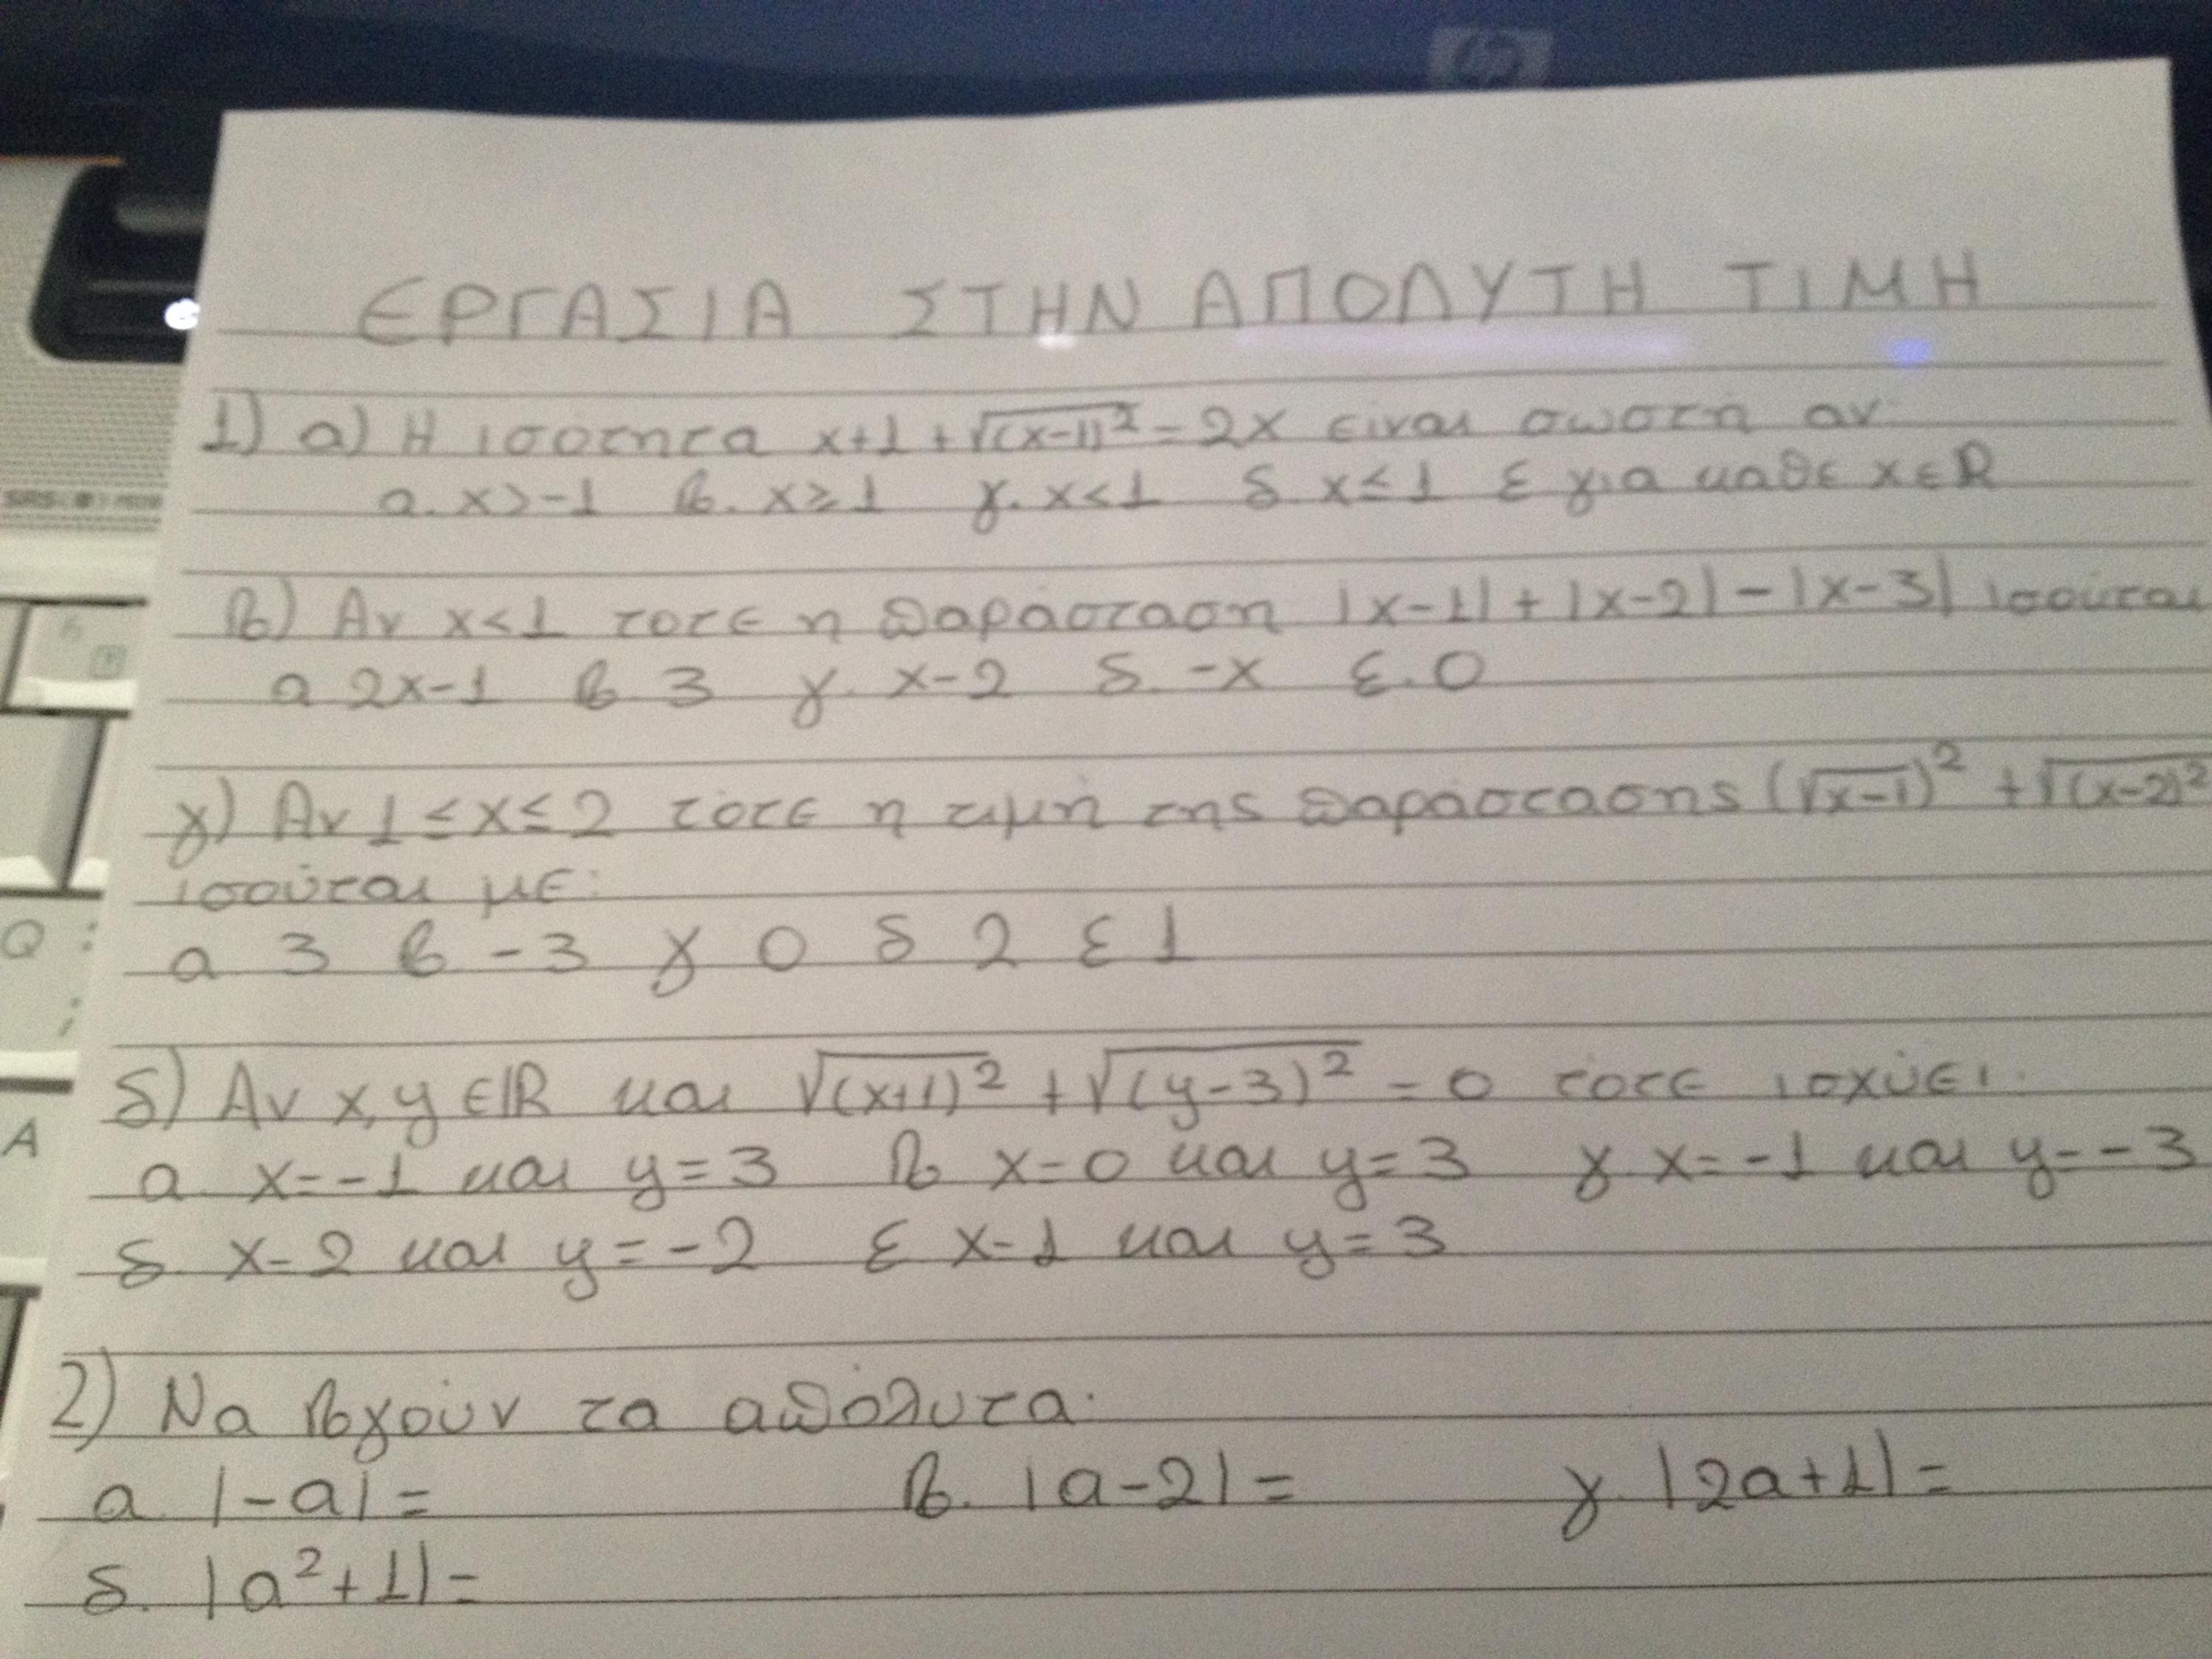 hp
ΕΡΓΑΣΙΑ ΣΤΗΝ ΑΠΟΛΥΤΗ ΤΙΜΗ
1) α) Η ισότητα x+1+√(x-1)² = 2x είναι σωστή αν
α. x>-1 β. x≥1 γ. x<1 δ x≤1 ε για καθε x∈R
β) Αν x<1 τοτε η παράσταση |x-1|+|x-2|-|x-3| ισούται
α 2x-1 β 3 γ. x-2 δ. -x ε. 0
γ) Αν 1≤x≤2 τότε η τιμή της παράστασης (√x-1)² +√(x-2)²
ισούται με:
α 3 β -3 γ 0 δ 2 ε 1
δ) Αν x,y ∈ℝ και √(x+1)² +√(y-3)² = 0 τότε ισχύει.
α. x=-1 και y=3 β x=0 και y=3 γ x=-1 και y=-3
δ. x=2 και y=-2 ε x=1 και y=3
2) Να βγούν τα απόλυτα·
α. |-α|= β. |α-2|= γ. |2α+1|=
δ. |α²+1|=
Q
A